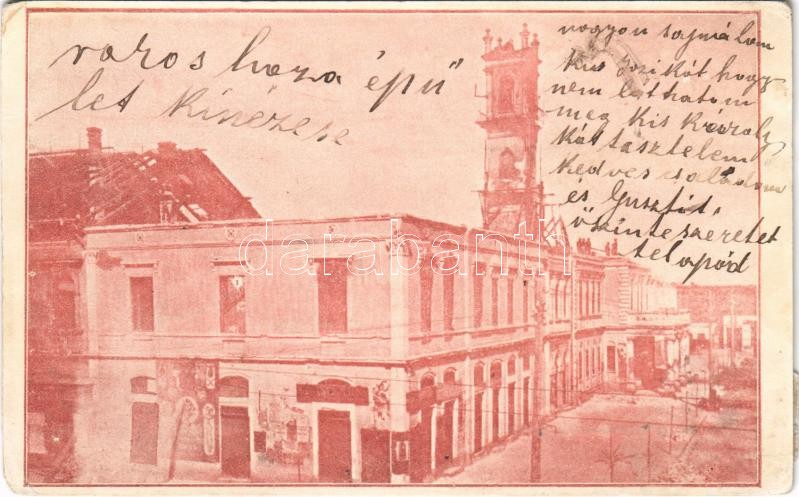 varos haza épü
let kinézese
nagyon sajnálom
kis Jozsikát hogy
nem láthatom
meg kis Károly
kát tasztelem
kedves családom
és Gusztit,
őszinte szeretet
tel apód
darabanth